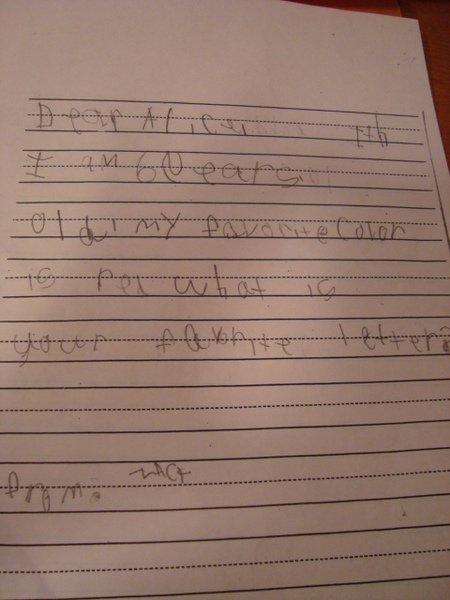 Dear Al,ice,
I am 6 years
old my favorite color
is rer what is
your favrite letter?
from.